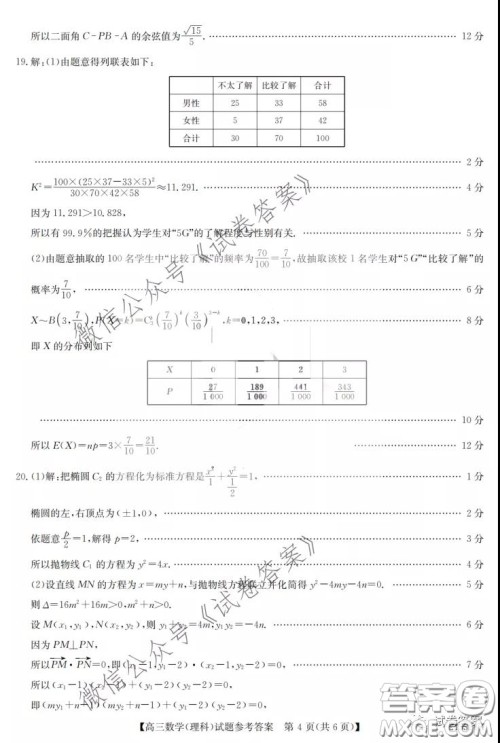 所以二面角 C-PB-A 的余弦值为 √15/5. 12 分
19.解:(1)由题意得列联表如下:
不太了解 比较了解 合计
男性 25 33 58
女性 5 37 42
合计 30 70 100
2 分
K²=100×(25×37-33×5)²/(30×70×42×58)≈11.291. 4 分
因为 11.291>10.828,
所以有 99.9%的把握认为学生对“5G”的了解程度与性别有关. 5 分
(2)由题意抽取的 100 名学生中“比较了解”的频率为 70/100=7/10,故抽取该校 1 名学生对“5G”“比较了解”的
概率为 7/10, 6 分
X~B(3,7/10),P(X=k)=C₃ᵏ(7/10)ᵏ(3/10)³⁻ᵏ,k=0,1,2,3, 8 分
即 X 的分布列如下
X 0 1 2 3
P 27/1 000 189/1 000 441/1 000 343/1 000
10 分
所以 E(X)=np=3×7/10=21/10. 12 分
20.(1)解:把椭圆 C₂ 的方程化为标准方程是 x²/1+y²/(1/2)=1, 1 分
椭圆的左,右顶点为(±1,0), 2 分
依题意 p/2=1,解得 p=2, 3 分
所以抛物线 C₁ 的方程为 y²=4x. 4 分
(2)设直线 MN 的方程为 x=my+n,与抛物线方程联立并化简得 y²-4my-4n=0. 5 分
则 Δ=16m²+16n>0,m²+n>0.
设 M(x₁,y₁),N(x₂,y₂),则 y₁+y₂=4m,y₁y₂=-4n. 6 分
因为 PM⊥PN,
所以 PM·PN=0,即(x₁-1,y₁-2)·(x₂-1,y₂-2)=0, 7 分
所以(x₁-1)(x₂-1)+(y₁-2)(y₂-2)=0. 8 分
即(my₁+n-1)(my₂+n-1)+(y₁-2)(y₂-2)=0,
【高三数学(理科)试题参考答案 第 4 页(共 6 页)】
微信公众号《试卷答案》
微信公众号《试卷答案》
答案圈
MXQE.COM